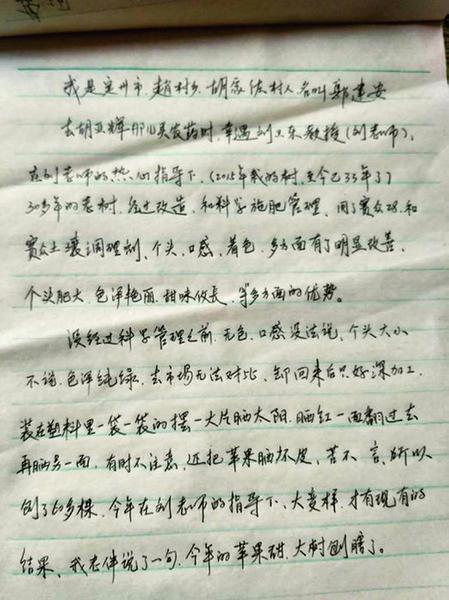 我是定州市.赵村乡.胡家佐村人.名叫郭建安
去胡亚辉那儿买农药时.幸遇刘卫东教授(刘老师)、
在刘老师的热心指导下.(2015年我的树.至今已33年了)
30多年的老树.经过改造.和科学施肥管理.用了宝众28.和
宝众土壤调理剂.个头.口感.着色.多方面有了明显改善.
个头肥大.色泽艳丽.甜味攸长.等多方面的优势。
没经过科学管理之前.无色.口感没法说.个头大小
不说.色泽纯绿.去市场无法对比.卸回来后只好深加工.
装在塑料里一袋一袋的摆一大片晒太阳.晒红一面翻过去
再晒另一面.有时不注意.还把苹果晒坏皮.苦不 言.所以
刨了60多棵.今年在刘老师的指导下、大变样.才有现有的
结果、我老伴说了一句.今年的苹果甜.大树刨瞎了。